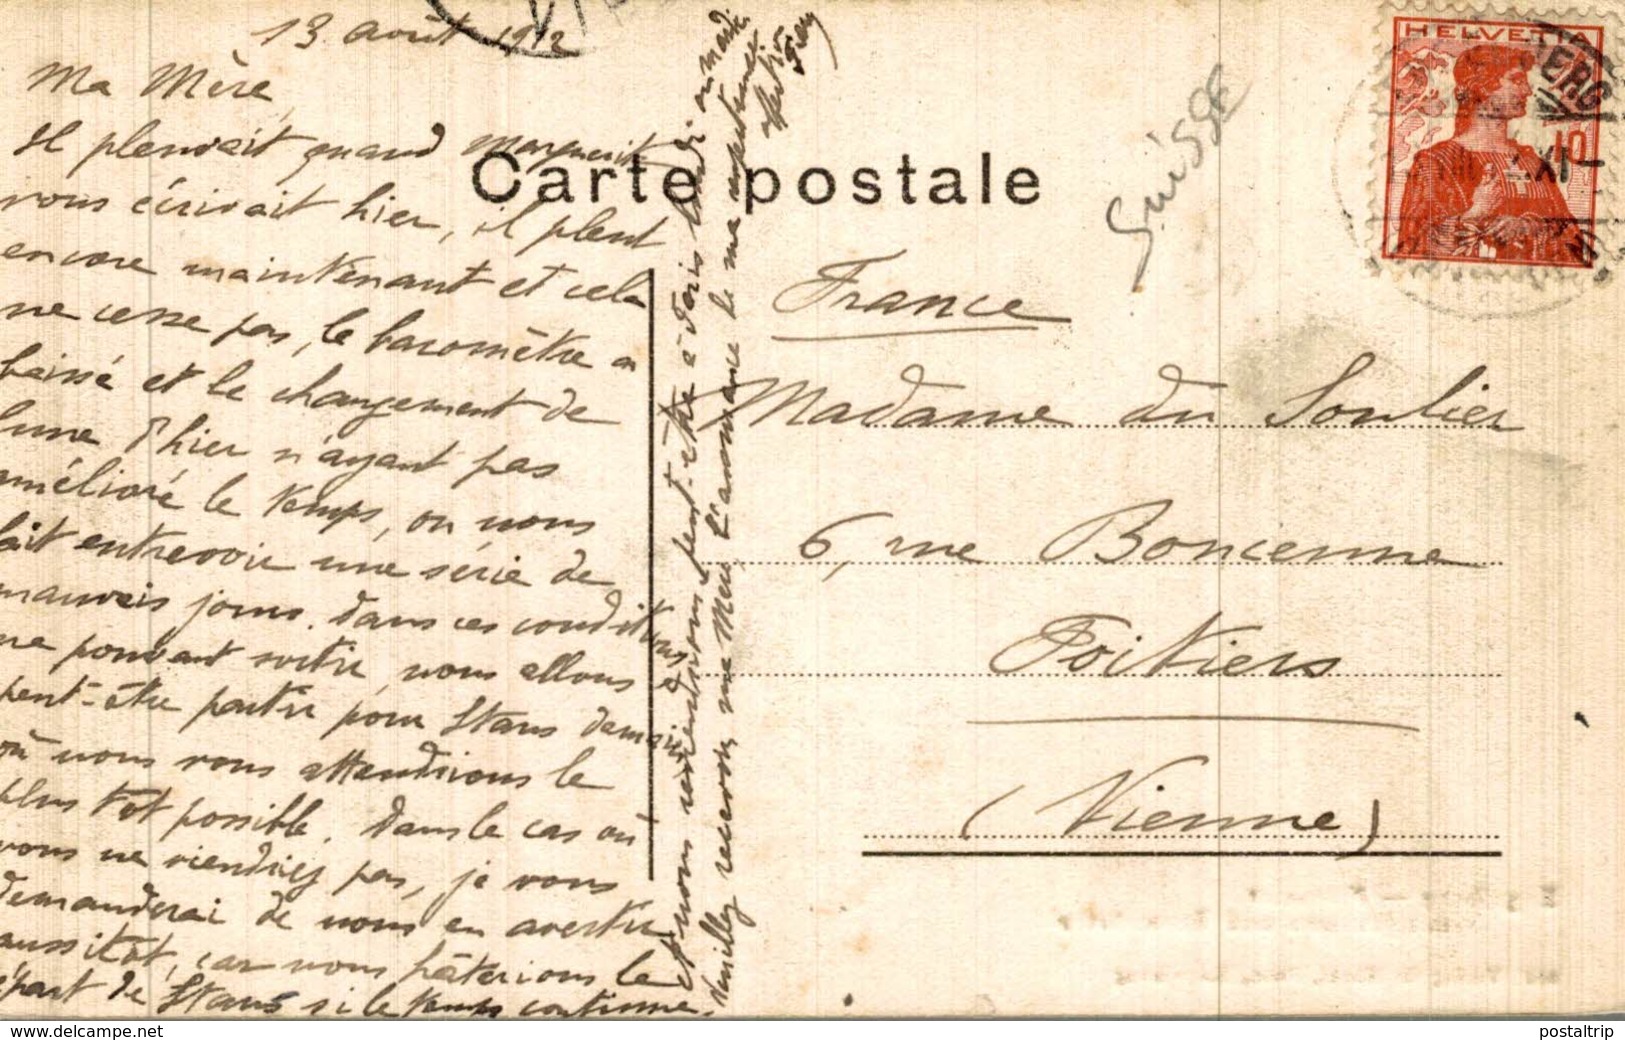 13 août 1912
Ma Mère,
Il pleuvait quand Marguerite
vous écrivait hier, il pleut
encore maintenant et cela
ne cesse pas, le baromètre a
baissé et le changement de
lune d'hier n'ayant pas
amélioré le temps, on nous
fait entrevoir une série de
mauvais jours. Dans ces conditions
ne pouvant sortir, nous allons
peut-être partir pour Stans demain
où nous vous attendrions le
plus tôt possible. Dans le cas où
vous ne viendriez pas, je vous
demanderai de nous en avertir
aussitôt, car nous hâterions le
départ de Stans si le temps continue
et nous reviendrions peut-être à Paris lundi ou mardi
Veuillez recevoir, ma Mère, l'assurance de ma respectueuse
affection
Carte postale
Suisse
HELVETIA
10
XI
France
Madame du Soulier
6, rue Boncenne
Poitiers
(Vienne)
postaltrip.delcampe.net
postaltrip